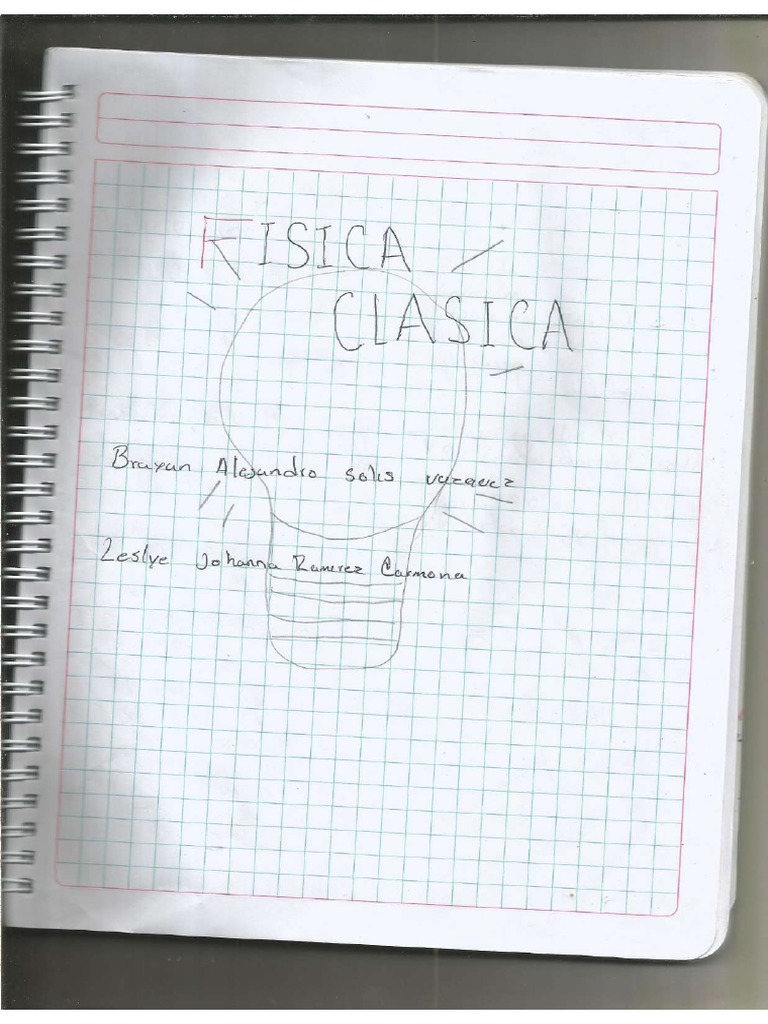 FISICA
CLASICA
Brayan Alejandro solis vazquez
Leslye Johanna Ramirez Carmona